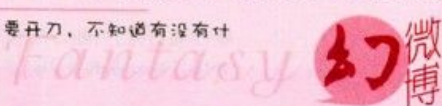 要开刀，不知道有没有什
Fantasy
幻
微博